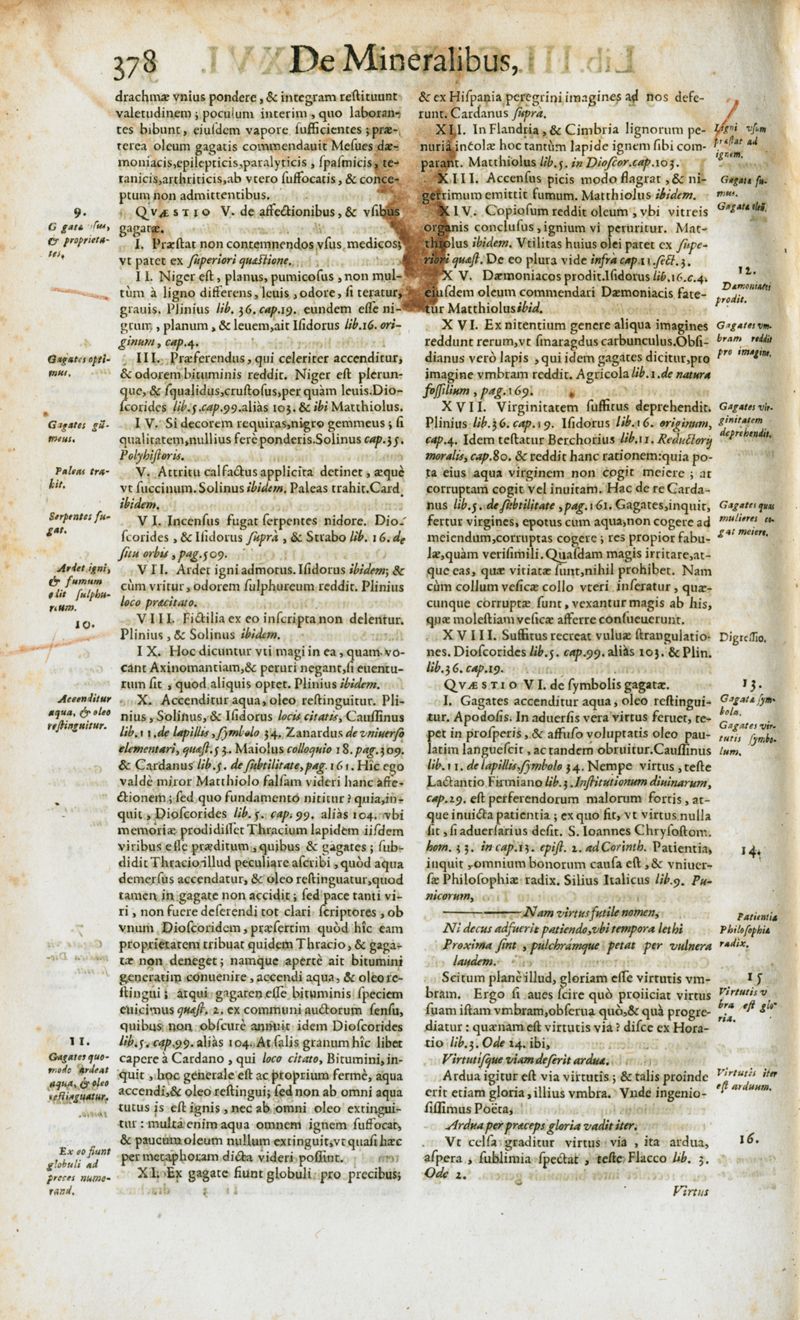 378 De Mineralibus,
drachmæ vnius pondere, & integram reſtituunt
valetudinem; poculum interim, quo laboran-
tes bibunt, eiuſdem vapore ſufficientes; præ-
terea oleum gagatis commendauit Meſues dæ-
moniacis,epilepticis,paralyticis, ſpaſmicis, te-
tanicis,arthriticis,ab vtero ſuffocatis, & conce-
ptum non admittentibus.
9.
QVÆSTIO V. de affectionibus, & vſibus
gagatæ.
Gagatæ vſus,
& proprieta-
tes,
I. Præſtat non contemnendos vſus medicos;
vt patet ex ſuperiori quæſtione.
II. Niger eſt, planus, pumicoſus, non mul-
tùm à ligno differens, leuis, odore, ſi teratur,
grauis. Plinius lib. 36. cap.19. eundem eſſe ni-
grum, planum, & leuem,ait Iſidorus lib.16. ori-
ginum, cap.4.
Gagates opti-
mus.
III. Præferendus, qui celeriter accenditur,
& odorem bituminis reddit. Niger eſt plerun-
que, & ſqualidus,cruſtoſus,per quàm leuis.Dio-
ſcorides lib.5.cap.99.aliàs 103. & ibi Matthiolus.
Gagates gẽ-
meus.
IV. Si decorem requiras,nigro gemmeus; ſi
qualitatem,nullius ferè ponderis.Solinus cap.35.
Polyhiſtoris.
Paleas tra-
hit.
V. Attritu calfactus applicita detinet, æquè
vt ſuccinum. Solinus ibidem. Paleas trahit.Card.
ibidem.
Serpentes fu-
gat.
VI. Incenſus fugat ſerpentes nidore. Dio-
ſcorides, & Iſidorus ſuprà, & Strabo lib. 16. de
ſitu orbis, pag.509.
Ardet igni,
& fumum
olit ſulphu-
reum.
VII. Ardet igni admotus. Iſidorus ibidem; &
cùm vritur, odorem ſulphureum reddit. Plinius
loco præcitato.
10.
VIII. Fictilia ex eo inſcripta non delentur.
Plinius, & Solinus ibidem.
IX. Hoc dicuntur vti magi in ea, quam vo-
cant Axinomantiam,& peruri negant,ſi euentu-
rum ſit, quod aliquis optet. Plinius ibidem.
Accenditur
aqua, & oleo
reſtinguitur.
X. Accenditur aqua, oleo reſtinguitur. Pli-
nius, Solinus, & Iſidorus locis citatis, Cauſſinus
lib.11.de lapillis, ſymbolo 34. Zanardus de vniuerſo
elementari, quæſt.53. Maiolus colloquio 18.pag.309.
& Cardanus lib.5. de ſubtilitate,pag.161. Hic ego
valdè miror Matthiolo falſam videri hanc affe-
ctionem; ſed quo fundamento nititur? quia,in-
quit, Dioſcorides lib. 5. cap. 99. aliàs 104. vbi
memoriæ prodidiſſet Thracium lapidem iiſdem
viribus eſſe præditum, quibus & gagates; ſub-
didit Thracio illud peculiare aſcribi, quòd aqua
demerſus accendatur, & oleo reſtinguatur,quod
tamen in gagate non accidit; ſed pace tanti vi-
ri, non fuere deſerendi tot clari ſcriptores, ob
vnum Dioſcoridem, præſertim quòd hîc eam
proprietatem tribuat quidem Thracio, & gaga-
tæ non deneget; namque apertè ait bitumini
generatim conuenire, accendi aqua, & oleo re-
ſtingui; atqui gagaten eſſe bituminis ſpeciem
euicimus quæſt. 2. ex communi auctorum ſenſu,
quibus non obſcurè annuit idem Dioſcorides
11.
lib.5. cap.99. aliàs 104. At ſalis granum hîc libet
Gagates quo-
modo ardeat
aqua, & oleo
reſtinguatur.
capere à Cardano, qui loco citato, Bitumini,in-
quit, hoc generale eſt ac proprium fermè, aqua
accendi,& oleo reſtingui; ſed non ab omni aqua
tutus is eſt ignis, nec ab omni oleo extingui-
tur: multa enim aqua omnem ignem ſuffocat,
& paucum oleum nullum extinguit,vt quaſi hæc
per metaphoram dicta videri poſſint.
Ex eo fiunt
globuli ad
preces nume-
rand.
XI. Ex gagate fiunt globuli pro precibus;
& ex Hiſpania peregrini imagines ad nos defe-
runt. Cardanus ſupra.
Ligni vſum
præſtat ad
ignem.
XII. In Flandria, & Cimbria lignorum pe-
nuria incolæ hoc tantùm lapide ignem ſibi com-
parant. Matthiolus lib.5. in Dioſcor.cap.103.
Gagatæ fu-
mus.
XIII. Accenſus picis modo flagrat, & ni-
gerrimum emittit fumum. Matthiolus ibidem.
Gagatæ oleũ.
XIV. Copioſum reddit oleum, vbi vitreis
organis concluſus, ignium vi peruritur. Mat-
thiolus ibidem. Vtilitas huius olei patet ex ſupe-
riori quæſt. De eo plura vide infrà cap.11.ſect.3.
12.
Dæmoniacos
prodit.
XV. Dæmoniacos prodit.Iſidorus lib.16.c.4.
eiuſdem oleum commendari Dæmoniacis fate-
tur Matthiolus ibid.
Gagates vm-
bram reddit
pro imagine.
XVI. Ex nitentium genere aliqua imagines
reddunt rerum,vt ſmaragdus carbunculus.Obſi-
dianus verò lapis, qui idem gagates dicitur,pro
imagine vmbram reddit. Agricola lib.1.de natura
foſſilium, pag.169.
Gagates vir-
ginitatem
deprehendit.
XVII. Virginitatem ſuffitus deprehendit.
Plinius lib.36. cap.19. Iſidorus lib.16. originum,
cap.4. Idem teſtatur Berchorius lib.11. Reductorij
moralis, cap.80. & reddit hanc rationem:quia po-
ta eius aqua virginem non cogit meiere; at
corruptam cogit vel inuitam. Hac de re Carda-
Gagates quas
mulieres co-
gat meiere.
nus lib.5. de ſubtilitate, pag.161. Gagates,inquit,
fertur virgines, epotus cum aqua,non cogere ad
meiendum,corruptas cogere; res propior fabu-
læ,quàm veriſimili. Quaſdam magis irritare,at-
que eas, quæ vitiatæ ſunt,nihil prohibet. Nam
cùm collum veſicæ collo vteri inſeratur, quæ-
cunque corruptæ ſunt, vexantur magis ab his,
quæ moleſtiam veſicæ afferre conſueuerunt.
Digreſſio.
XVIII. Suffitus recreat vuluæ ſtrangulatio-
nes. Dioſcorides lib.5. cap.99. aliàs 103. & Plin.
lib.36. cap.19.
13.
QVÆSTIO VI. de ſymbolis gagatæ.
Gagatæ ſym-
bola.
Gagates vir-
tutis ſymbo-
lum.
I. Gagates accenditur aqua, oleo reſtingui-
tur. Apodoſis. In aduerſis vera virtus feruet, te-
pet in proſperis, & affuſo voluptatis oleo pau-
latim langueſcit, ac tandem obruitur.Cauſſinus
lib.11. de lapillis,ſymbolo 34. Nempe virtus, teſte
Lactantio Firmiano lib.3.Inſtitutionum diuinarum,
cap.29. eſt perferendorum malorum fortis, at-
que inuicta patientia; ex quo fit, vt virtus nulla
ſit, ſi aduerſarius deſit. S. Ioannes Chryſoſtom.
14.
hom. 33. in cap.13. epiſt. 2. ad Corinth. Patientia,
inquit, omnium bonorum cauſa eſt, & vniuer-
ſæ Philoſophiæ radix. Silius Italicus lib.9. Pu-
nicorum,
Patientia
Philoſophiæ
radix.
Nam virtus futile nomen,
Ni decus adfuerit patiendo,vbi tempora lethi
Proxima ſint, pulchrámque petat per vulnera
laudem.
15
Virtutis v
bra eſt glo-
ria.
Scitum planè illud, gloriam eſſe virtutis vm-
bram. Ergo ſi aues ſcire quò proiiciat virtus
ſuam iſtam vmbram,obſerua quò,& quà progre-
diatur: quænam eſt virtutis via? diſce ex Hora-
tio lib.3. Ode 24. ibi,
Virtutiſque viam deſerit arduæ.
Virtutis iter
eſt arduum.
Ardua igitur eſt via virtutis; & talis proinde
erit etiam gloria, illius vmbra. Vnde ingenio-
ſiſſimus Poëta,
Ardua per præceps gloria vadit iter.
16.
Vt celſa graditur virtus via, ita ardua,
aſpera, ſublimia ſpectat, teſte Flacco lib. 3.
Ode 2.
Virtus